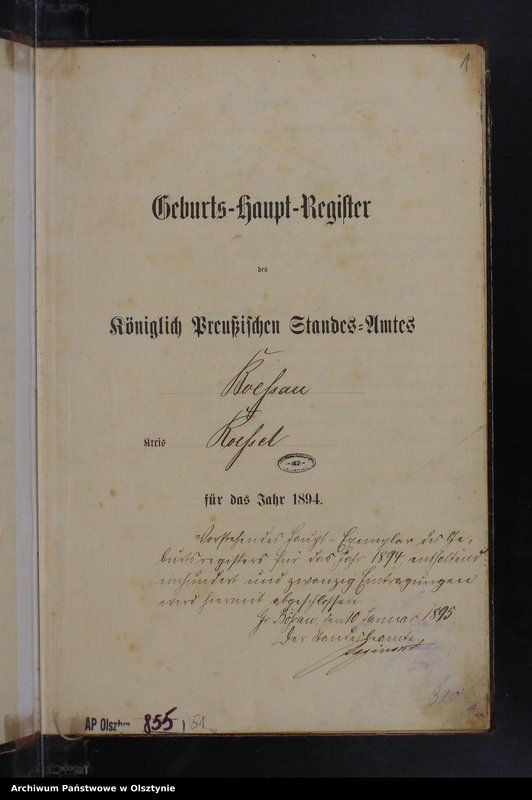 1
Geburts-Haupt-Register
des
Königlich Preußischen Standes-Amtes
Koessau
Kreis Roessel
42
für das Jahr 1894.
Vorstehendes Haupt-Exemplar des Ge-
burtsregisters für das Jahr 1894, enthaltend
einhundert und zwanzig Eintragungen
wird hiermit abgeschlossen
Gr. Kößau, den 10 Januar 1895
Der Standesbeamte
AP Olsztyn 855 / 51
Archiwum Państwowe w Olsztynie